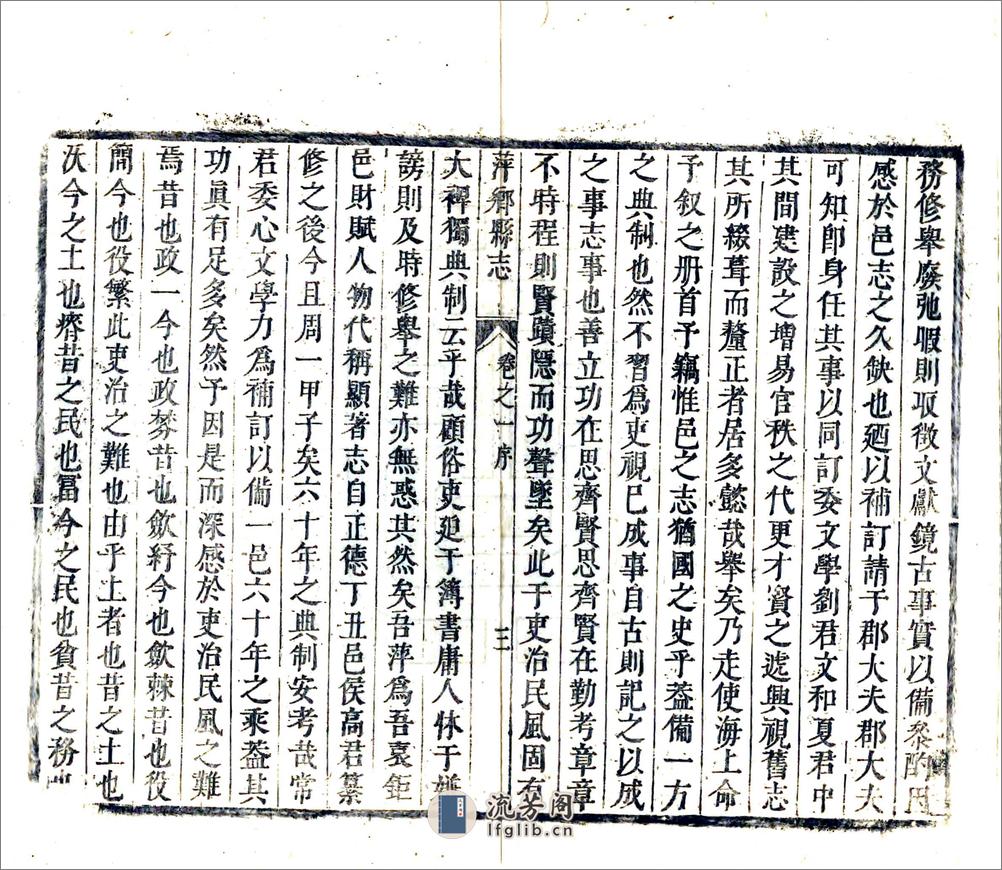 務修舉廢弛暇則収徵文獻鏡古事實以備黎酌因
感於邑志之久缺也廼以補訂請于郡大夫郡大夫
可知卽身任其事以同訂委文學劉君文和夏君中
其間建設之增易官秩之代更才賢之遞興視舊志
其所綴葺而釐正者居多懿哉舉矣乃走使海上命
予叙之册首予竊惟邑之志猶國之史乎葢備一方
之典制也然不習爲吏視已成事自古則記之以成
之事志事也善立功在思齊賢思齊賢在勤考章章
不時程則賢蹟隱而功聲墜矣此于吏治民風固有
萍鄉縣志 卷之一序 三
大裨獨典制云乎哉顧俗吏廹于簿書庸人怵于
謗則及時修舉之難亦無惑其然矣吾萍爲吾袁鉅
邑財賦人物代稱顯著志自正德丁丑邑侯高君纂
修之後今且周一甲子矣六十年之典制安考哉常
君委心文學力爲補訂以備一邑六十年之乘葢其
功眞有足多矣然予因是而深感於吏治民風之難
焉昔也政一今也政棼昔也歛紓今也歛棘昔也役
簡今也役繁此吏治之難也由乎上者也昔之土也
沃今之土也瘠昔之民也冨今之民也貧昔之務
流芳阁
lfglib.cn